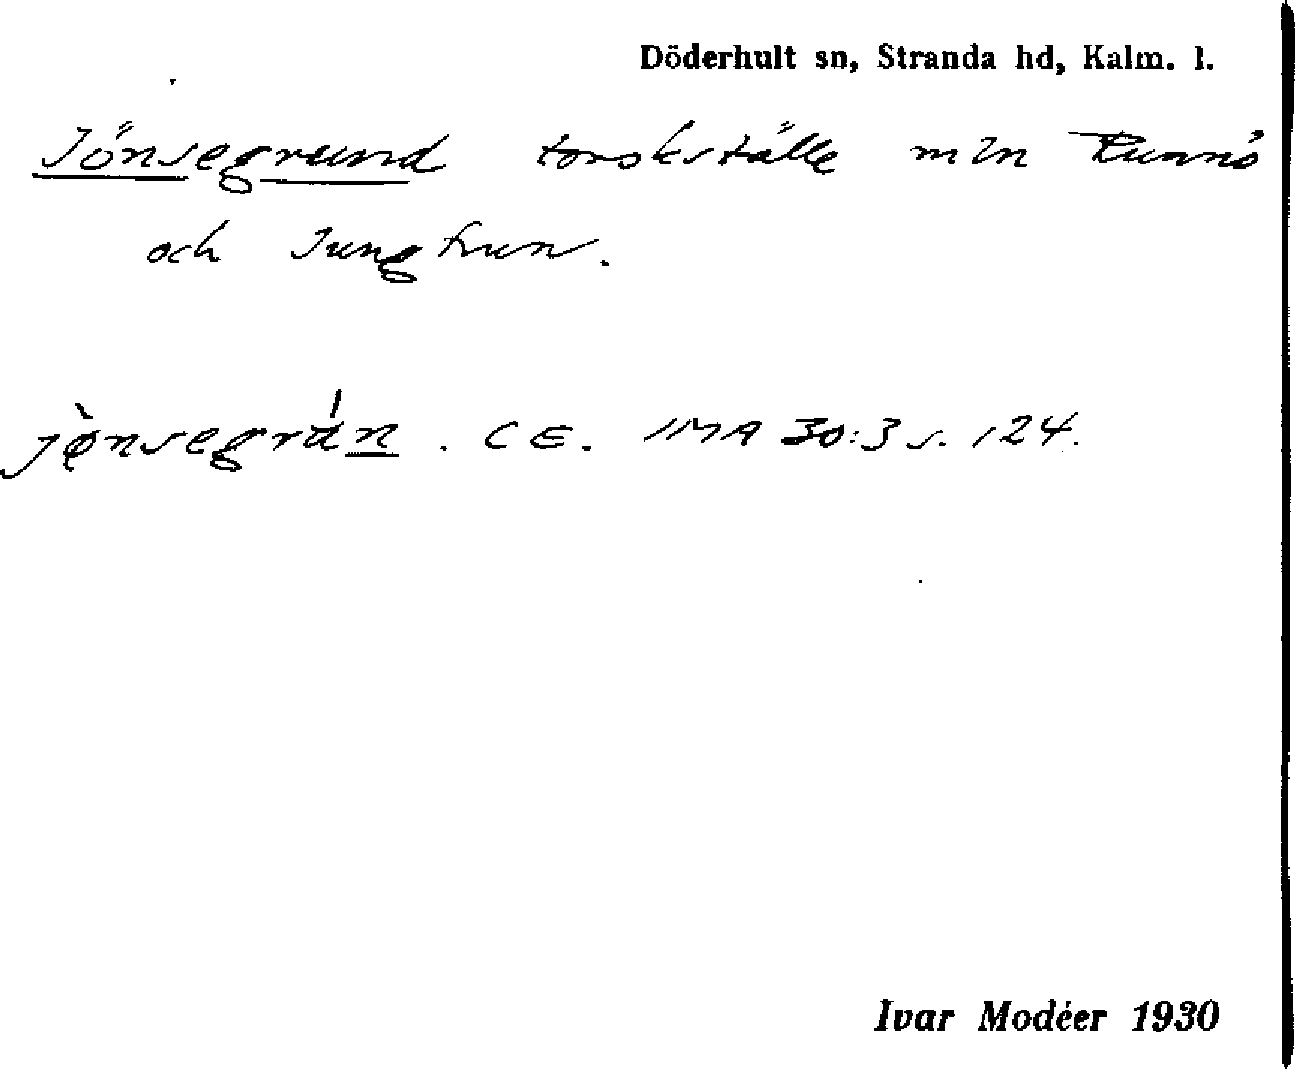 Döderhult sn, Stranda hd, Kalm. l.
Jönsegrund torskställe mln Runnö
och Jungfrun.
jø̀nsegrán. CE. IMA 30:3 s. 124.
Ivar Modéer 1930